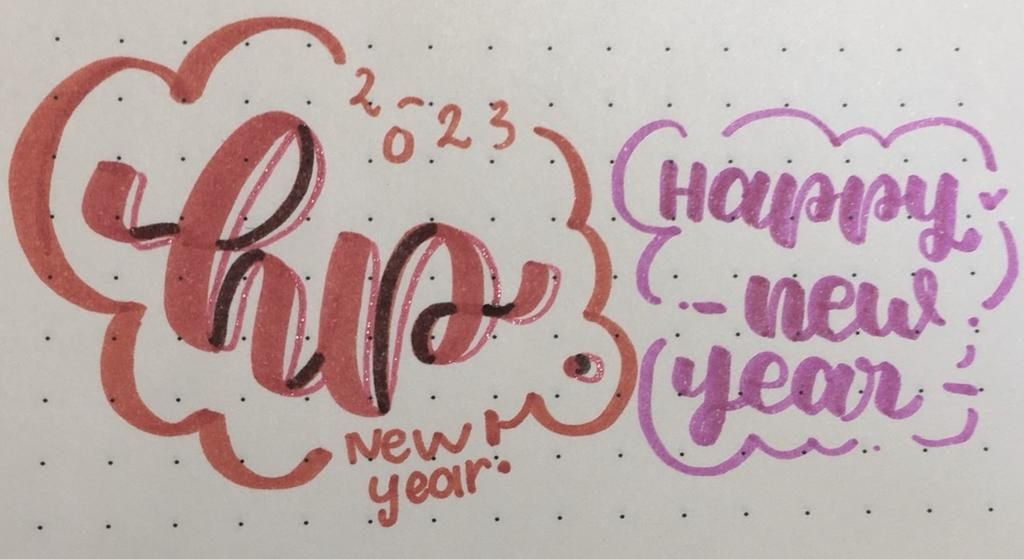 2023
hp.
New
year.
Happy
new
year